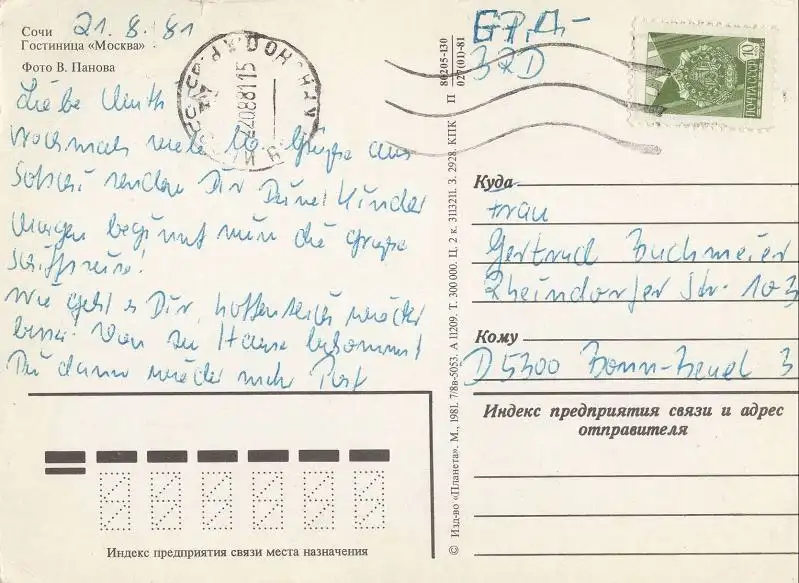 Сочи
21.8.81
Гостиница «Москва»
Фото В. Панова
Liebe
Nochmals viele Grüße aus
Sotschi senden Dir Deine Kinder
Morgen beginnt nun die große
Schiffreise!
Wie geht es Dir, hoffentlich wieder
besser! Von zu Hause bekommst
Du dann wieder mehr Post
МЕЖДУНАРОДН
СССР
10
ПОЧТА СССР
BRD
Куда
Frau
Gertrud Buchmeier
Rheindorfer Str. 103
Кому
D 5300 Bonn-Beuel 3
Индекс предприятия связи и адрес
отправителя
Индекс предприятия связи места назначения
© Изд-во «Планета». М., 1981. 7/8в-5053. А 11209. Т. 300 000. Ц. 2 к. З. 2928. КПК П
80205-130
027(01)-81